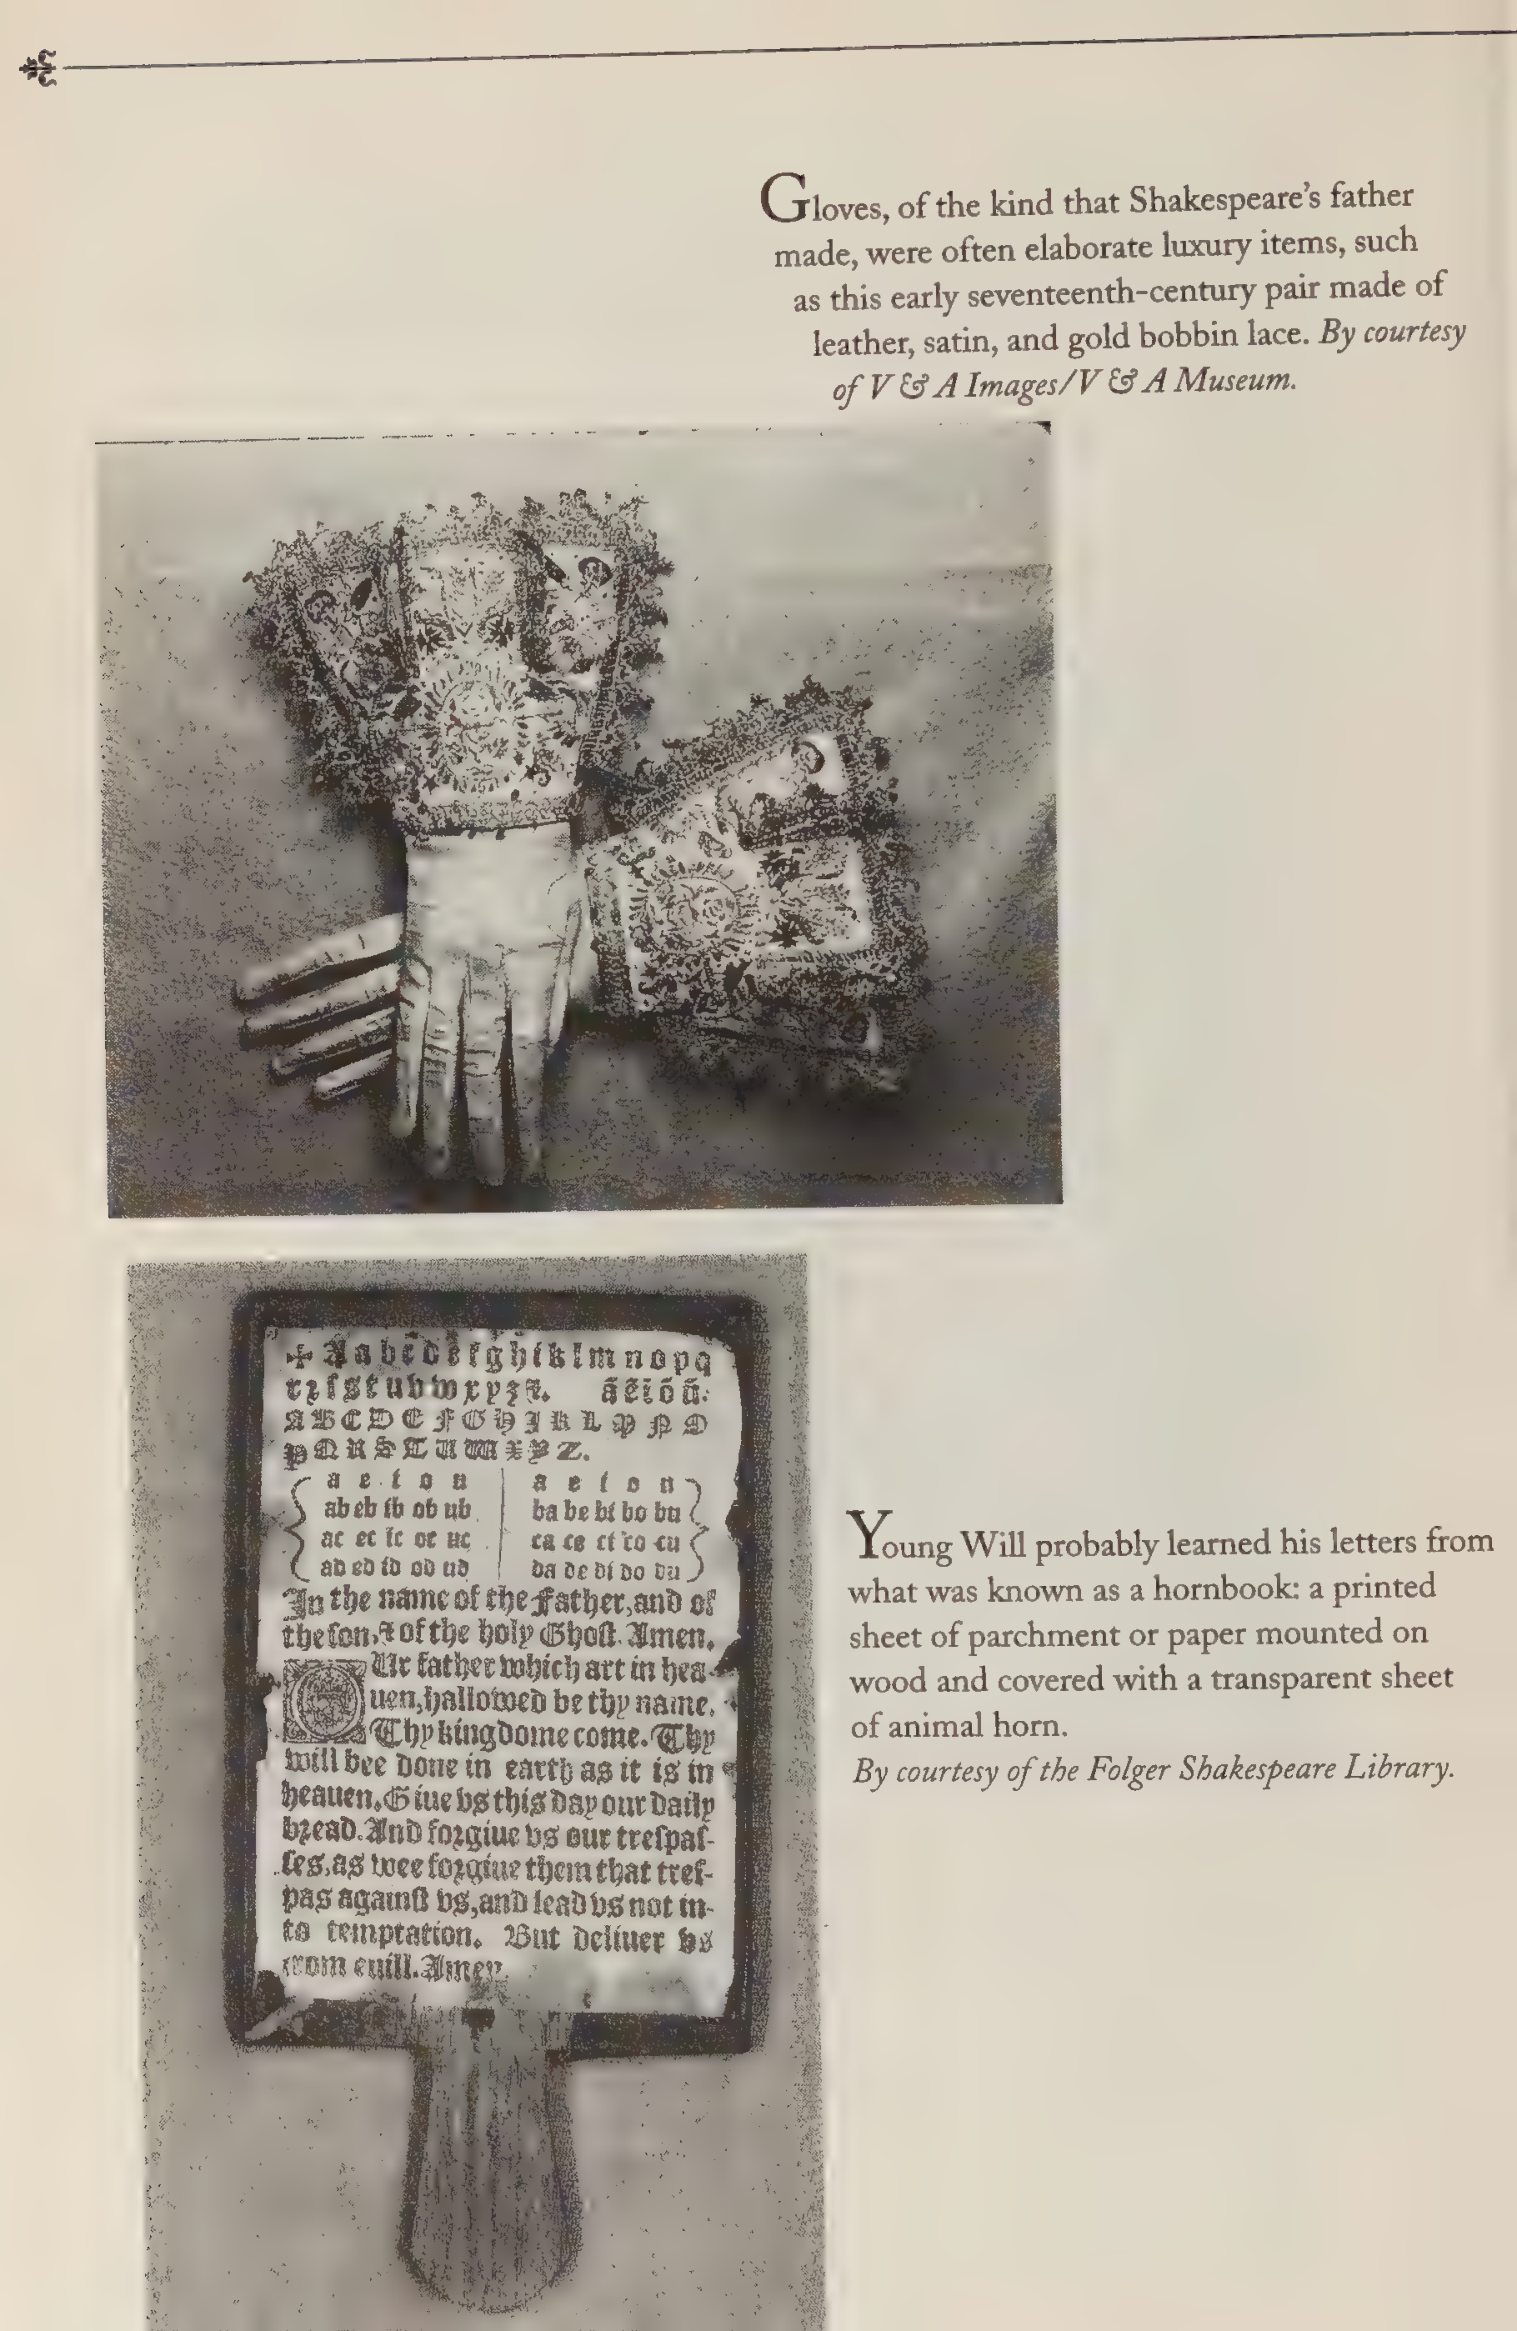 Gloves, of the kind that Shakespeare's father
made, were often elaborate luxury items, such
as this early seventeenth-century pair made of
leather, satin, and gold bobbin lace. By courtesy
of V & A Images/V & A Museum.
✠ A a b c d e f g h i k l m n o p q
r ꝛ ſ s t u v w x y z &. ã ẽ ĩ õ ũ:
A B C D E F G H I K L M N O
P Q R S T U W X Y Z.
a e i o u a e i o u
ab eb ib ob ub ba be bi bo bu
ac ec ic oc uc ca ce ci co cu
ad ed id od ud da de di do du
In the name of the Father, and of
the ſon, & of the holy Ghoſt. Amen.
OUr father which art in hea-
uen, hallowed be thy name.
Thy kingdome come. Thy
will bee done in earth as it is in
heauen. Giue vs this day our daily
bread. And forgiue vs our treſpaſ-
ſes, as wee forgiue them that treſ-
pas againſt vs, and lead vs not in-
to temptation. But deliuer vs
from euill. Amen.
Young Will probably learned his letters from
what was known as a hornbook: a printed
sheet of parchment or paper mounted on
wood and covered with a transparent sheet
of animal horn.
By courtesy of the Folger Shakespeare Library.